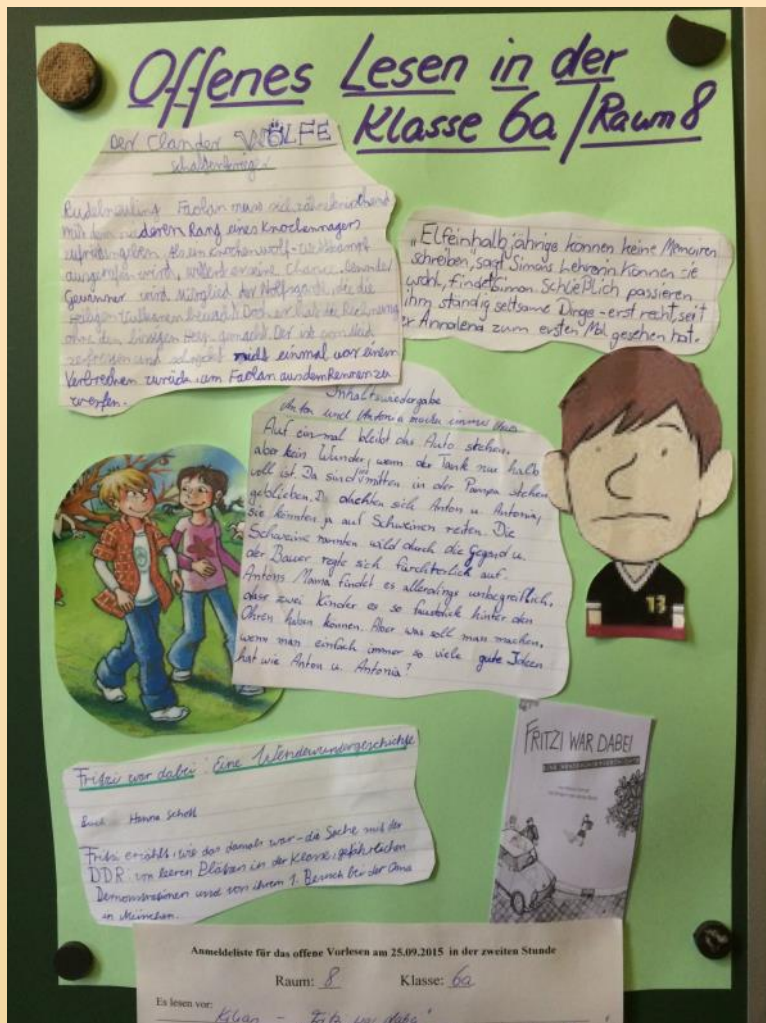 Offenes Lesen in der
Klasse 6a / Raum 8
Der Clan der WÖLFE
Schattenkrieger
Rudelneuling Faolan muss sich zähneknirschend
mit dem niederen Rang eines Knochennagers
zufriedengeben. Als ein Knochenwolf-Wettkampf
ausgerufen wird, wittert er seine Chance, denn der
Gewinner wird Mitglied der Wolfsgarde, die die
Heiligen Vulkane bewacht! Doch er hat die Rechnung
ohne den bissigen Heep gemacht. Der ist vom Neid
zerfressen und schreckt nicht einmal vor einem
Verbrechen zurück, um Faolan aus dem Rennen zu
werfen.
"Elfeinhalbjährige können keine Memoiren
schreiben", sagt Simons Lehrerin. Können sie
wohl, findet Simon. Schließlich passieren
ihm ständig seltsame Dinge - erst recht, seit
er Annalena zum ersten Mal gesehen hat.
Inhaltswiedergabe
Anton und Antonia machen immer
Auf einmal bleibt das Auto stehen,
aber kein Wunder, wenn der Tank nur halb
voll ist. Da sind mitten in der Pampa stehen
geblieben. Da dachten sich Anton u. Antonia,
sie könnten ja auf Schweinen reiten. Die
Schweine rannten wild durch die Gegend u.
der Bauer regte sich fürchterlich auf.
Antons Mama findet es allerdings unbegreiflich,
dass zwei Kinder es so faustdick hinter den
Ohren haben können. Aber was soll man machen,
wenn man einfach immer so viele gute Ideen
hat wie Anton u. Antonia?
13
Fritzi war dabei: Eine Wendewundergeschichte
Hanna Schott
Fritzi erzählt, wie das damals war - die Sache mit der
DDR: von leeren Plätzen in der Klasse, gefährlichen
Demonstrationen und von ihrem 1. Besuch bei der Oma
in München.
FRITZI WAR DABEI
EINE WENDEWUNDERGESCHICHTE
Anmeldeliste für das offene Vorlesen am 25.09.2015 in der zweiten Stunde
Raum: 8 Klasse: 6a
Es lesen vor:
Kilian - "Fritzi war dabei"